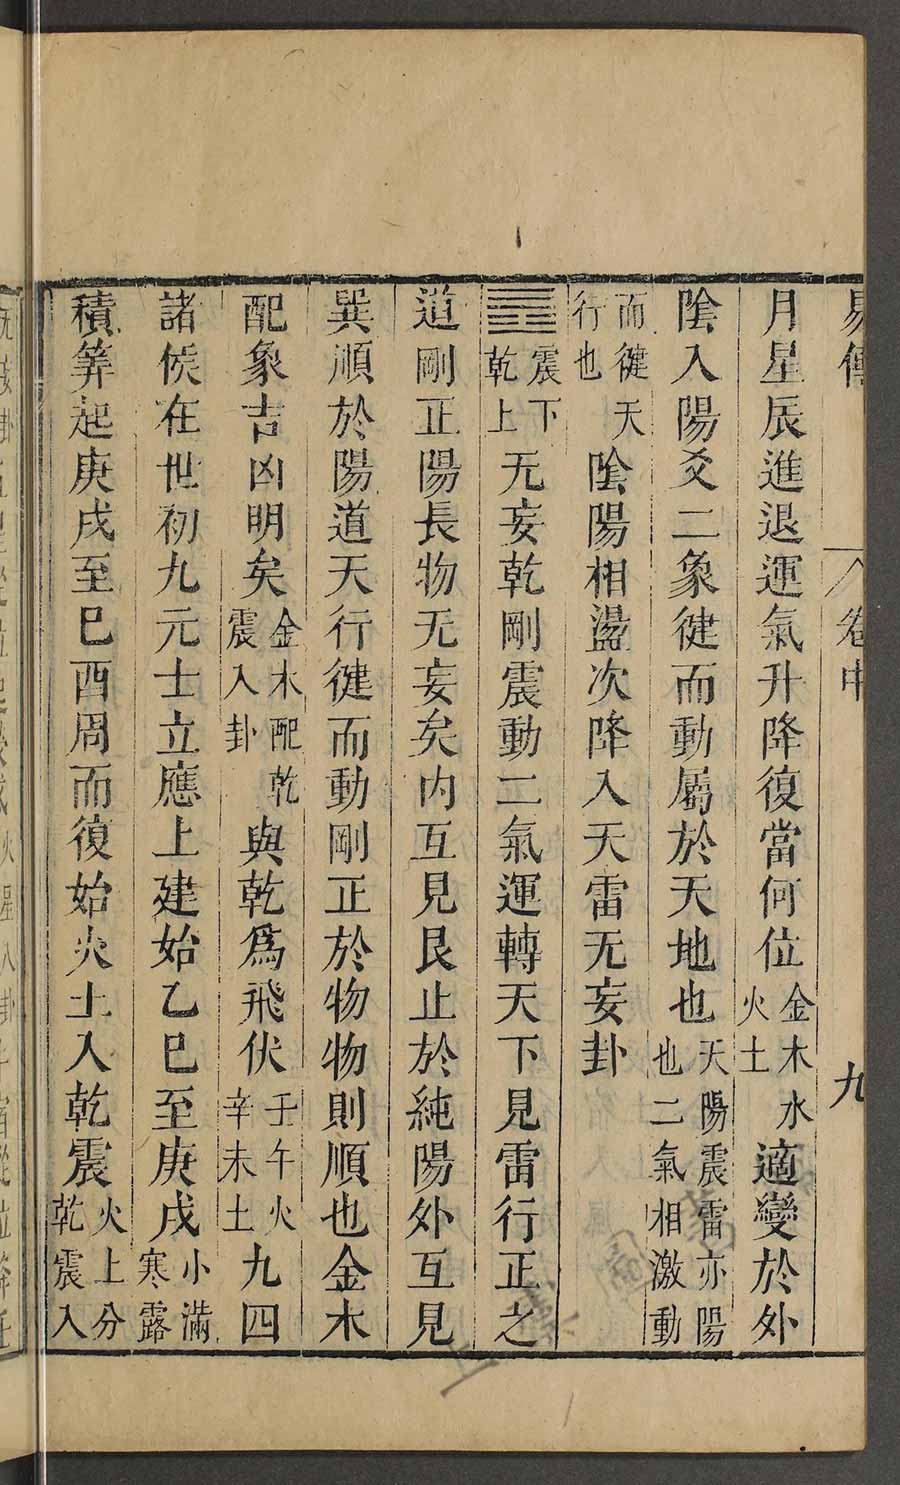 易傳 卷中 九
月星辰進退運氣升降復當何位金木水火土適變於外
陰入陽爻二象健而動屬於天地也天陽震雷亦陽也二氣相激動
而健天行也陰陽相盪次降入天雷无妄卦
䷘震下乾上无妄乾剛震動二氣運轉天下見雷行正之
道剛正陽長物无妄矣内互見艮止於純陽外互見
巽順於陽道天行健而動剛正於物物則順也金木
配象吉凶明矣金木配乾震入卦與乾爲飛伏壬午火辛未土九四
諸侯在世初九元士立應上建始乙巳至庚戌小滿寒露
積筭起庚戌至巳酉周而復始火土入乾震火上分乾震入